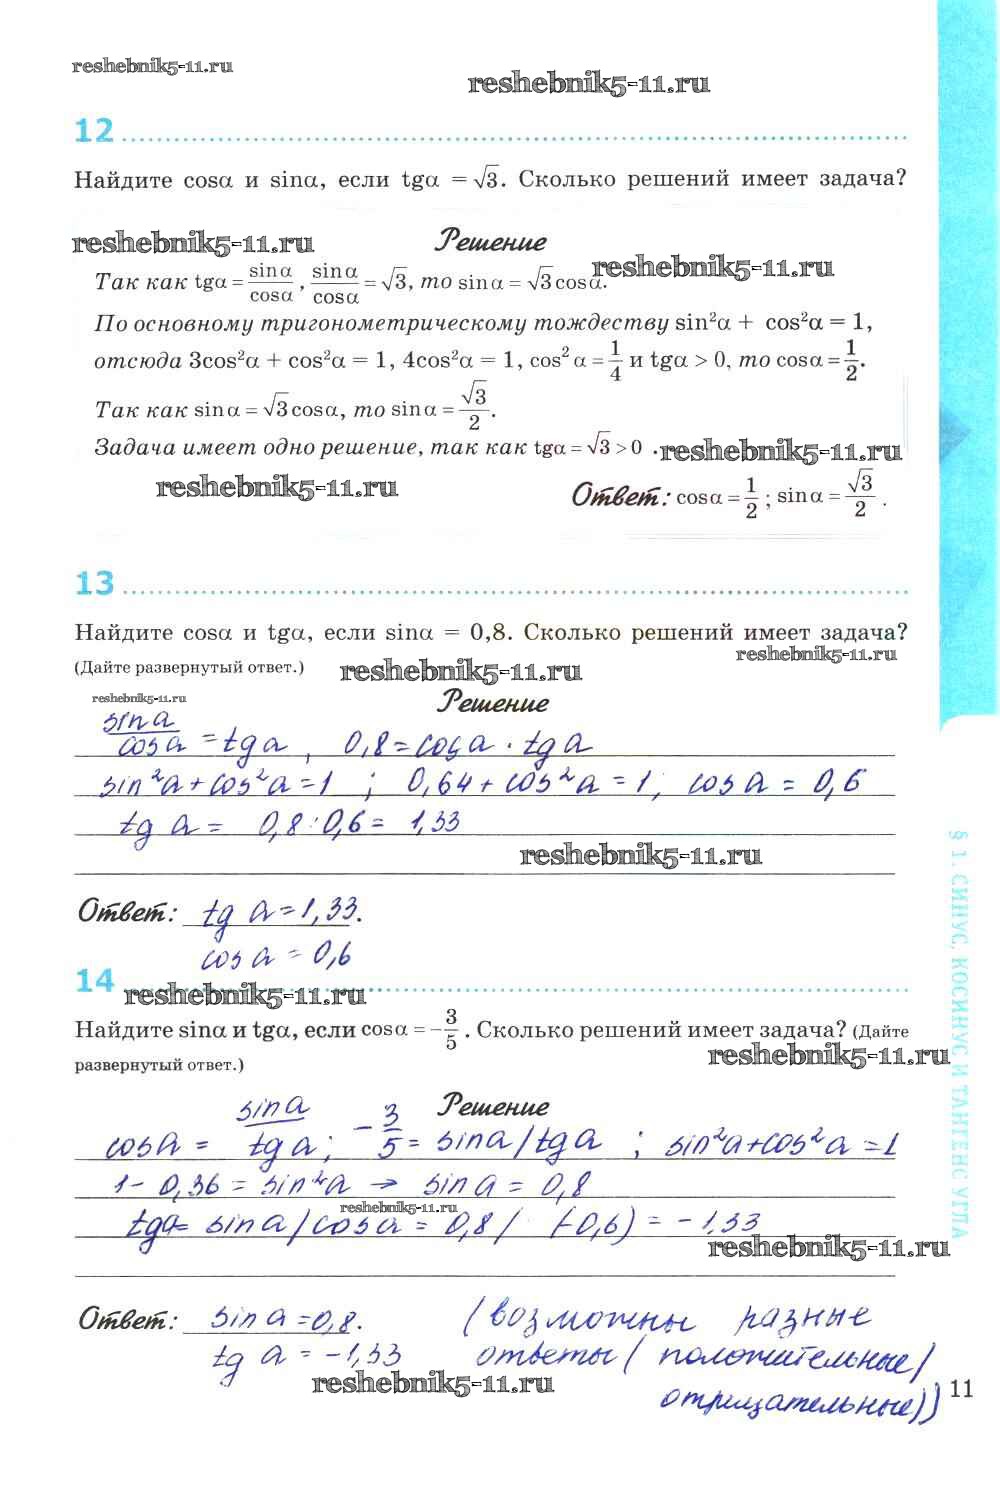 reshebnik5-11.ru
reshebnik5-11.ru
12
Найдите cosα и sinα, если tgα = √3. Сколько решений имеет задача?
reshebnik5-11.ru Решение
Так как tgα = sinα/cosα, sinα/cosα = √3, то sinα = √3cosα. reshebnik5-11.ru
По основному тригонометрическому тождеству sin²α + cos²α = 1,
отсюда 3cos²α + cos²α = 1, 4cos²α = 1, cos²α = 1/4 и tgα > 0, то cosα = 1/2.
Так как sinα = √3cosα, то sinα = √3/2.
Задача имеет одно решение, так как tgα = √3 > 0 . reshebnik5-11.ru
reshebnik5-11.ru
Ответ: cosα = 1/2 ; sinα = √3/2 .
13
Найдите cosα и tgα, если sinα = 0,8. Сколько решений имеет задача?
(Дайте развернутый ответ.) reshebnik5-11.ru reshebnik5-11.ru
reshebnik5-11.ru Решение
sin a/cos a = tg a , 0,8 = cos a · tg a
sin²a + cos²a = 1 ; 0,64 + cos²a = 1; cos a = 0,6
tg a = 0,8 : 0,6 = 1,33
reshebnik5-11.ru
Ответ: tg a = 1,33.
cos a = 0,6
14 reshebnik5-11.ru
Найдите sinα и tgα, если cosα = -3/5 . Сколько решений имеет задача? (Дайте
развернутый ответ.) reshebnik5-11.ru
Решение
cos a = sin a/tg a; -3/5 = sin a/tg a ; sin²a + cos²a = 1
1 - 0,36 = sin²a → sin a = 0,8
reshebnik5-11.ru
tg a = sin a/cos a = 0,8/(-0,6) = -1,33
reshebnik5-11.ru
Ответ: sin a = 0,8. (возможны разные
tg a = -1,33 ответы (положительные/
reshebnik5-11.ru
отрицательные))
11
§ 1. СИНУС, КОСИНУС И ТАНГЕНС УГЛА